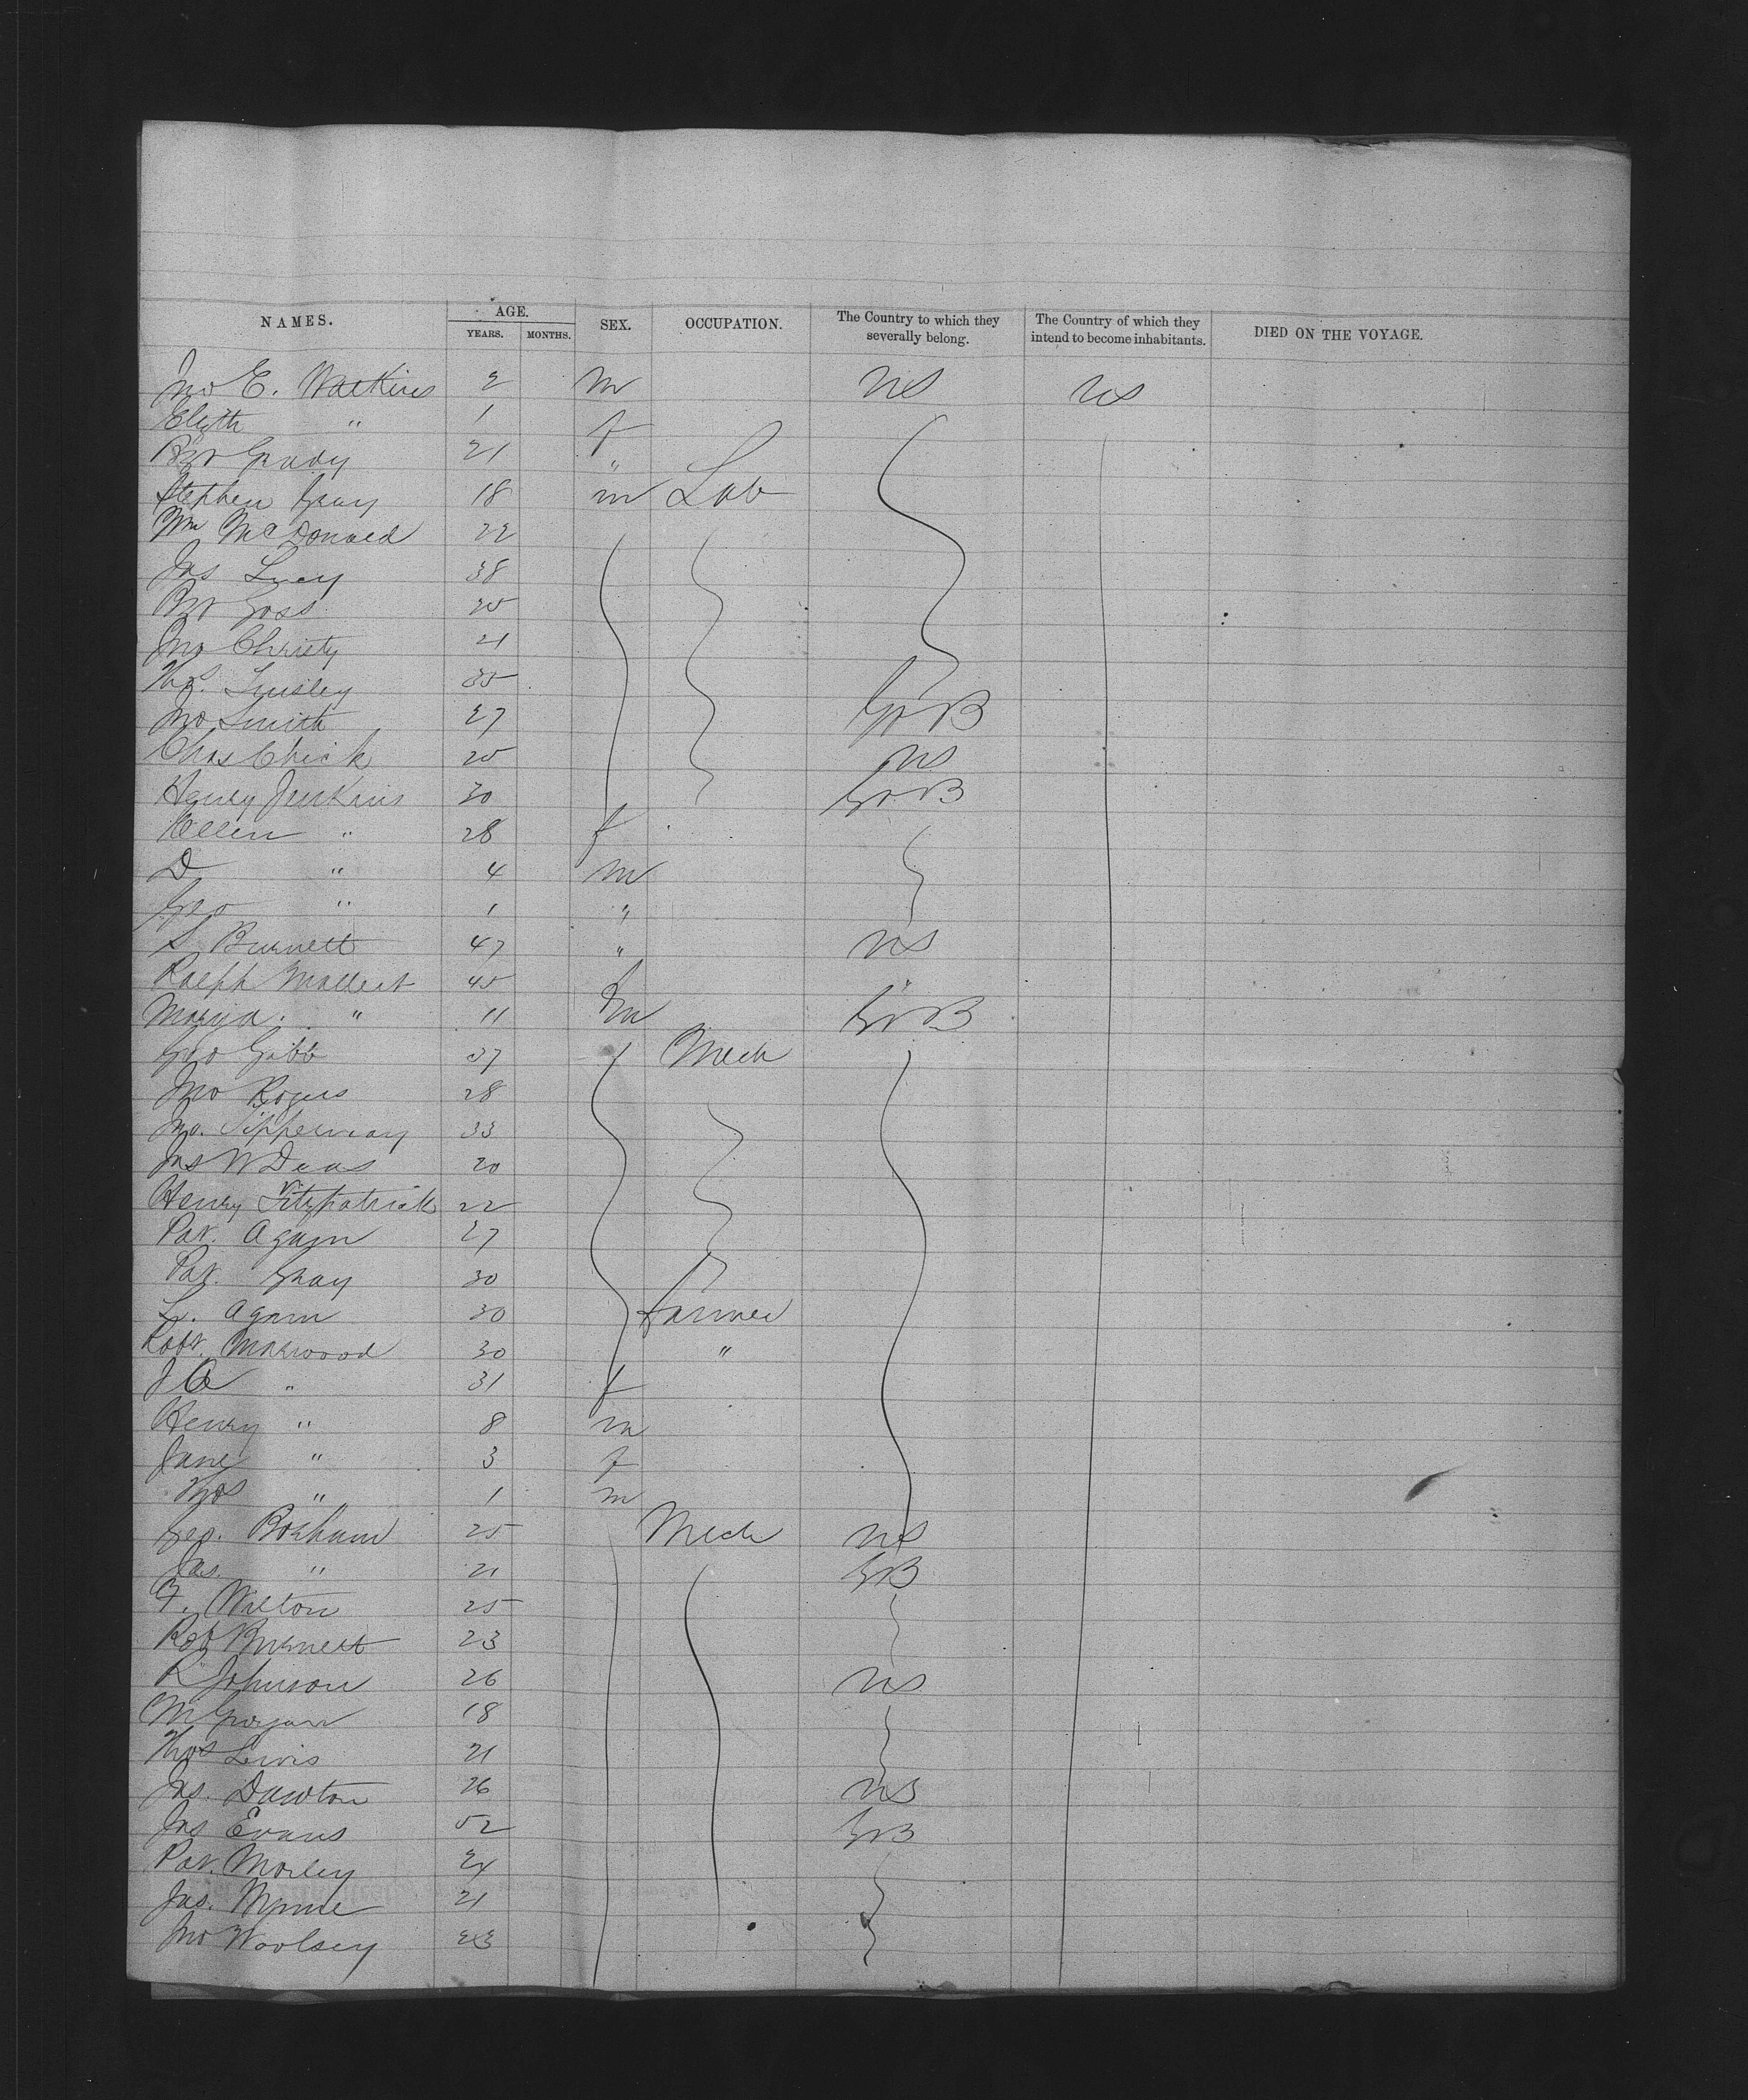 NAMES. AGE. YEARS. MONTHS. SEX. OCCUPATION. The Country to which they severally belong. The Country of which they intend to become inhabitants. DIED ON THE VOYAGE.
Jno E. Watkins 2 m US US
Elizth " 1 f
Grady 21 "
Stephen Gray 18 m Lab
Wm McDonald 22
Jas Lucy 38
Goss 25
Jno Christy 21
Thos. Tinsley 35
Jno Smith 27 Gr B
Chas Chick 25 US
Henry Jenkins 30 Gr B
Ellen " 28 f
D " 4 m
Geo " 1 "
S Burnett 47 " US
Ralph Mallect 45 "
Maria " 11 Gr B
Geo Gibb 37 Mech
Jno Rogers 28
Jno. 33
Jas W Deas 20
Henry Fitzpatrick 22
Pat. Agam 27
Pat. Gray 30
L. Agam 30 Farmer
Robt. Marwood 30 "
J A " 31 f
Henry " 8 m
Jane " 3 f
Thos " 1 m
Geo. Borham 25 Mech US
Jas. " 21 Gr B
F. Wilton 25
Rob Burnett 23
R Johnson 26 US
M Grogan 18
Thos Lewis 21
Jas. Dawton 26 US
Jas Evans 52 Gr B
Pat. Morley 24
Jas. 21
Jno Woolsey 23